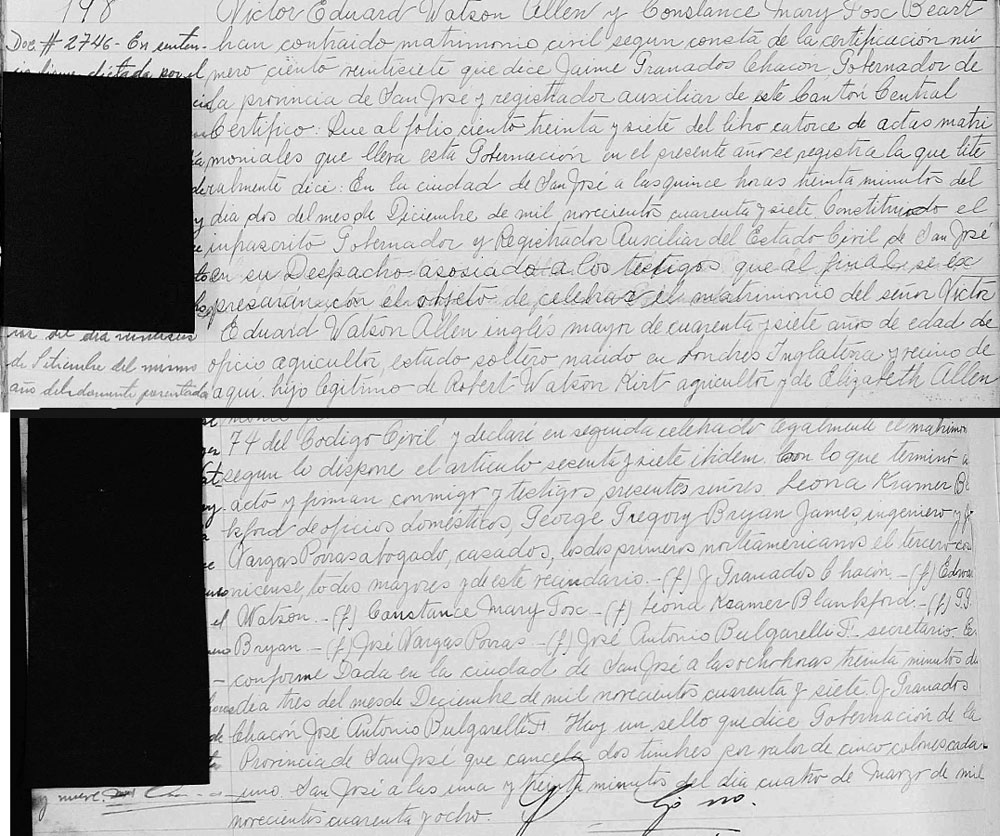 198 Victor Eduard Watson Allen y Constance Mary Fosc Beart
Doc. # 2746 - En senten- han contraido matrimonio civil segun consta de la certificación nú
dictada por el mero ciento veintisiete que dice Jaime Granados Chacon, Gobernador de
la provincia de San José y registrador auxiliar de este Cantón Central
Certifico: Que al folio ciento treinta y siete del libro catorce de actas matri
moniales que lleva esta Gobernación en el presente año se registra la que lite
ralmente dice: En la ciudad de San José a las quince horas treinta minutos del
y dia dos del mes de Diciembre de mil novecientos cuarenta y siete. Constituido el
infrascrito Gobernador y Registrador Auxiliar del Estado Civil de San José
en su Despacho asociado a los testigos que al final se ex
presarán con el objeto de celebrar el matrimonio del señor Victor
del dia Eduard Watson Allen inglés mayor de cuarenta y siete años de edad de
de Setiembre del mismo oficio agricultor, estado soltero nacido en Londres Inglaterra y vecino de
año debidamente aquí. hijo legitimo de Robert Watson Kirt agricultor y de Elizabeth Allen
74 del Codigo Civil y declaré en seguida celebrado legalmente el matrimo
segun lo dispone el articulo sesenta y siete ibidem. Con lo que terminó a
acto y firman conmigo y testigos presentes señores Leona Kramer Bl
kford de oficios domésticos, George Gregory Bryan James, ingeniero y J.
Vargas Porras abogado, casados, los dos primeros norteamericanos el tercero cos
nicense, todos mayores y de este vecindario. - (f) J Granados Chacon - (f) Edwar
el Watson. - (f) Constance Mary Fosc - (f) Leona Kramer Blankford. - (f) G.G.
Bryan - (f) José Vargas Porras - (f) José Antonio Bulgarelli F. secretario. Es
- conforme Dada en la ciudad de San José a las ocho horas treinta minutos de
dia tres del mes de Deciembre de mil novecientos cuarenta y siete. J. Granados
de Chacón José Antonio Bulgarelli F. Hay un sello que dice Gobernación de la
Provincia de San José que cancela dos timbres por valor de cinco colones cada
y nueve. uno. San José a las una y treinta minutos del dia cuatro de Marzo de mil
novecientos cuarenta y ocho.